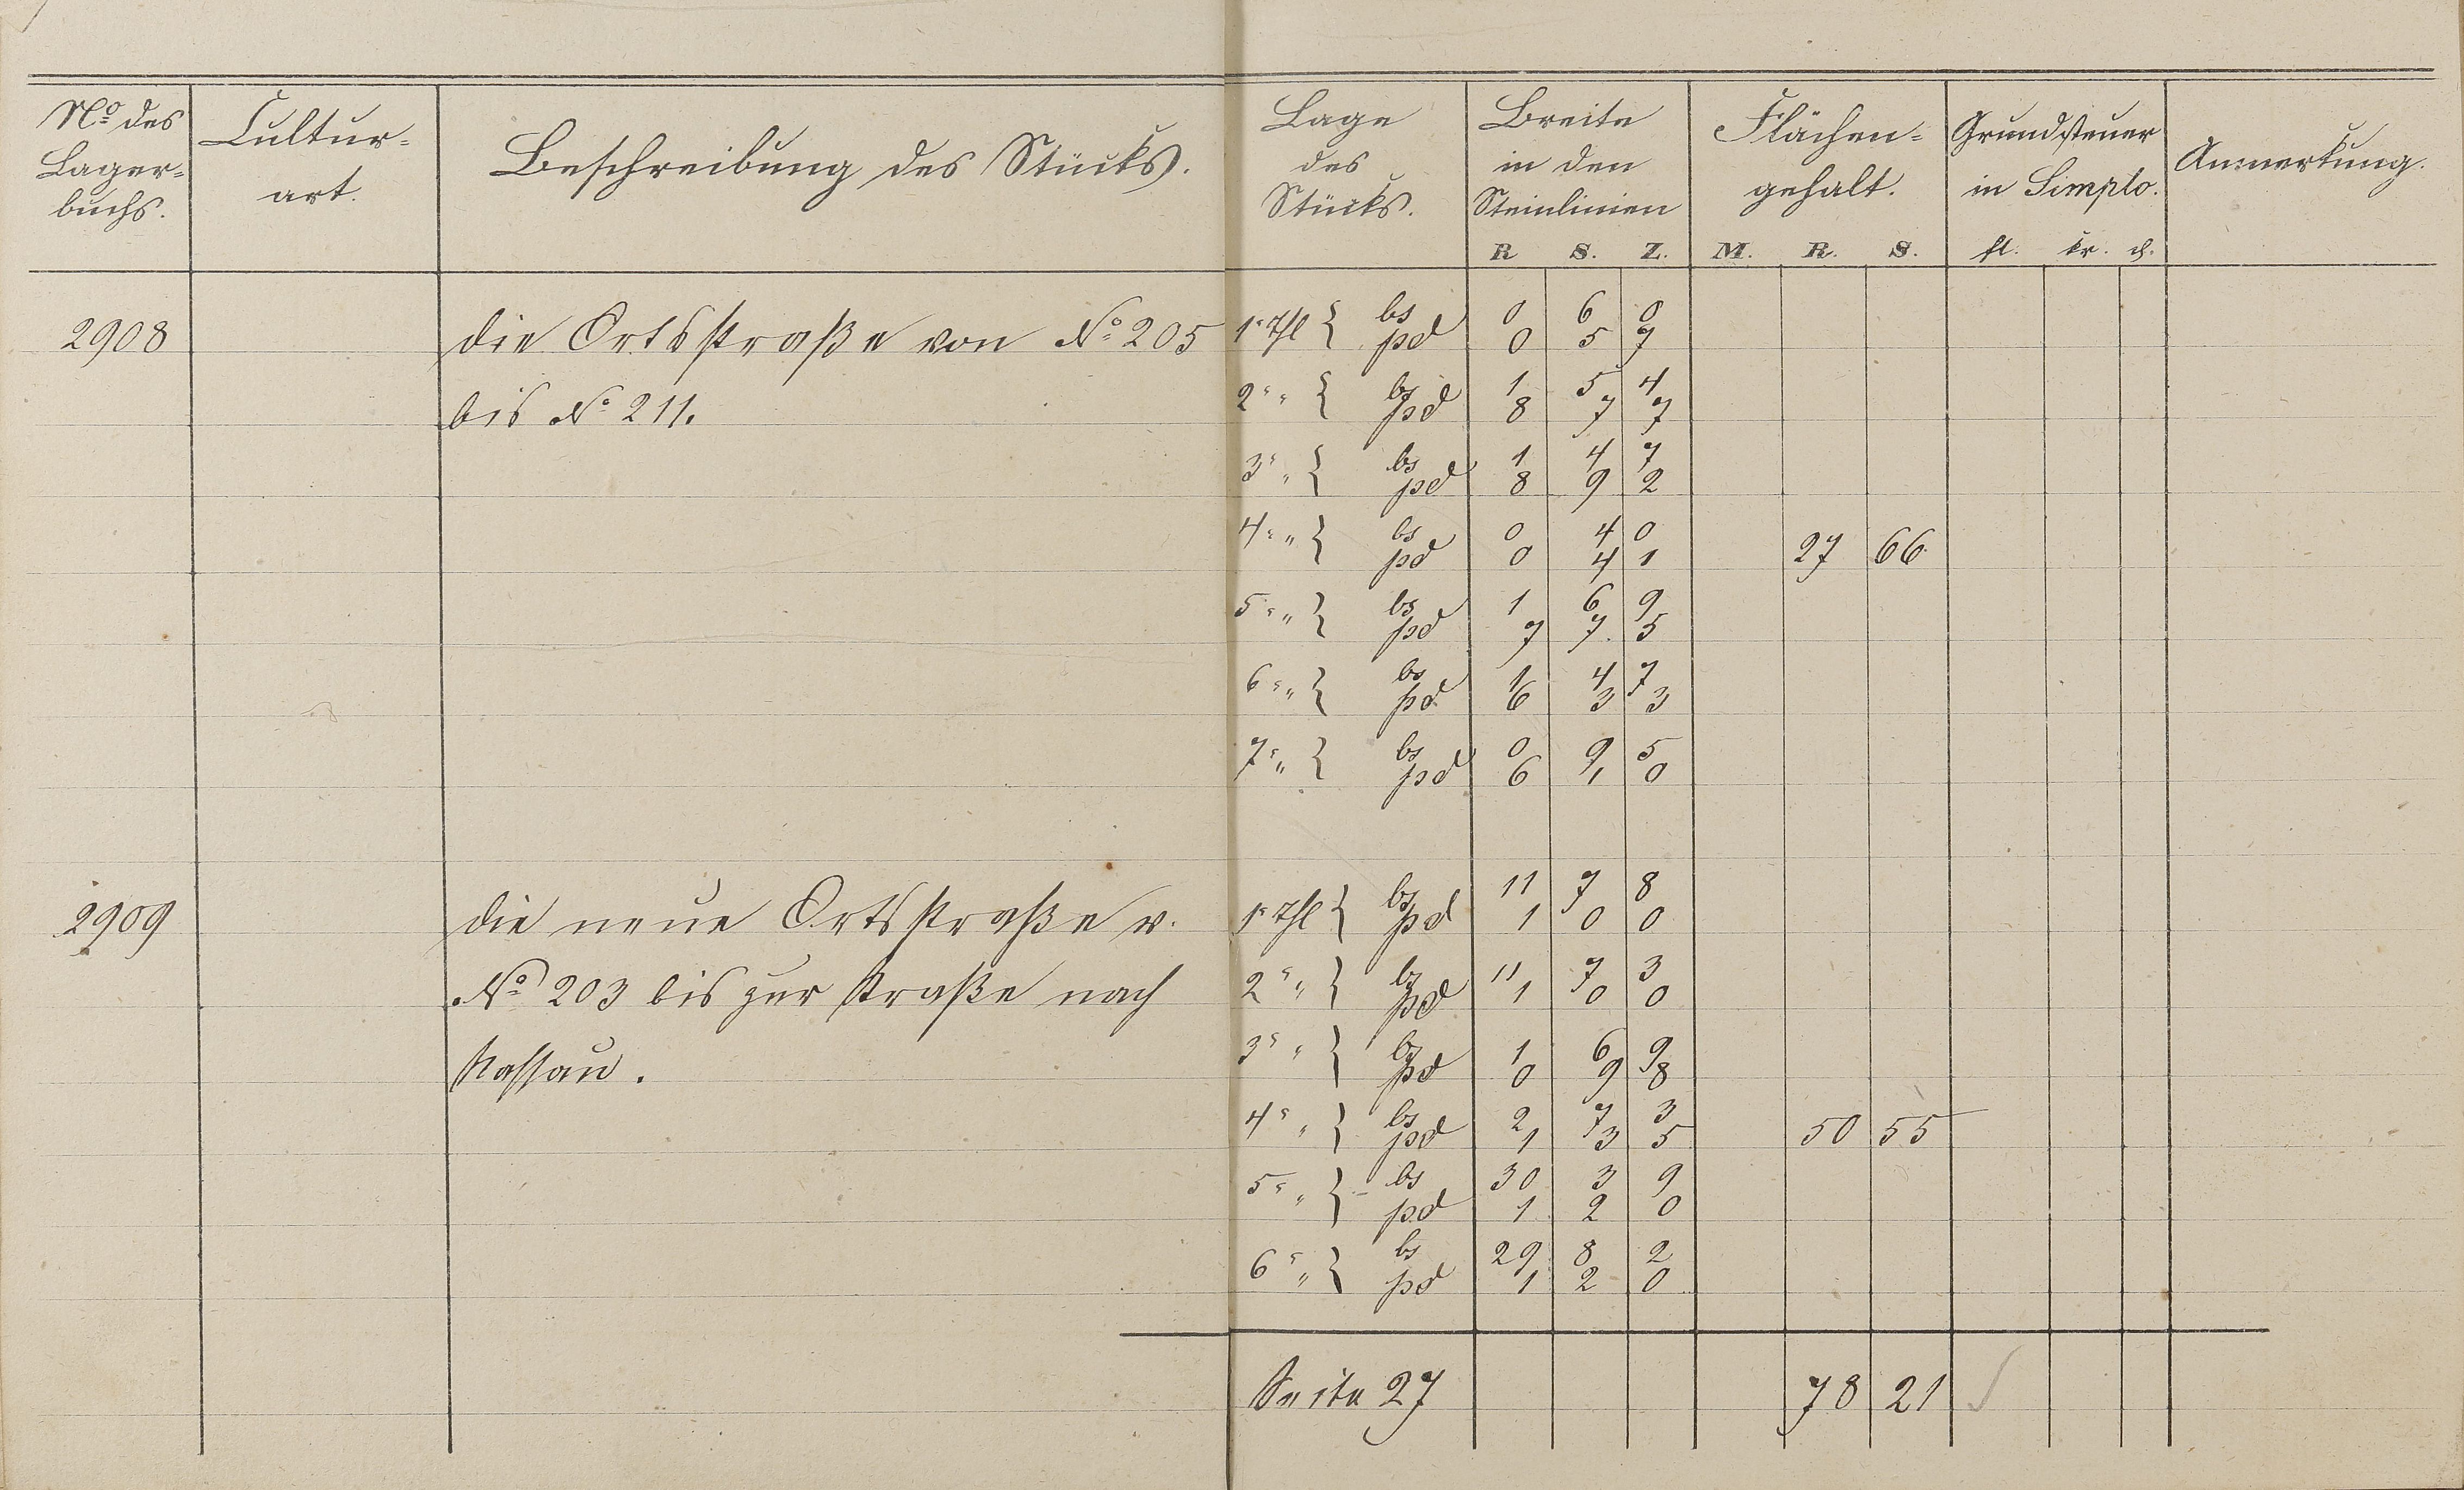 No des Lager= buchs.
Cultur= art.
Beschreibung des Stücks.
Lage des Stücks.
Breite in den Steinlinien
R S. Z.
Flächen= gehalt.
M. R. S.
Grundsteuer in Simplo.
fl. kr. d.
Anmerkung.
2908 die Ortsstraße von No 205 1r Thl { bs 0 6 0
pd 0 5 7
bis No 211. 2r " { bs 1 5 4
pd 8 7 7
3r " { bs 1 4 7
pd 8 9 2
4r " } bs 0 4 0
pd 0 4 1 27 66
5r " } bs 1 6 9
pd 7 7. 5
6r " } bs 1 4 7
pd 6 3 3
7r " } bs 0 9 5
pd 6 1 0
2909 die neue Ortsstraße v. 1r Thl { bs 11 7 8
pd 1 0 0
No 203 bis zur Straße nach 2r " } bs 11 7 3
pd 1 0 0
Nassau. 3r " } bs 1 6 9
pd 0 9 8
4r " } bs 2 7 3
pd 1 3 5 50 55
5r " } bs 30 3 9
pd 1 2 0
6r " } bs 29 8 2
pd 1 2 0
Seite 27 78 21